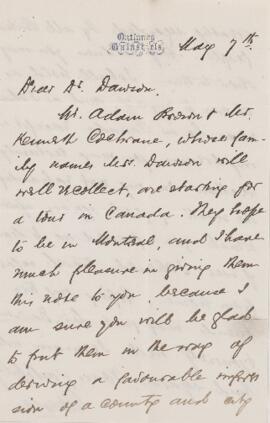 May 7th.
Dear Dr. Dawson,
Mr. Adam Brown & Mr.
Kenneth Cochrane, whose fam-
ily names Mrs. Dawson will
well recollect, are starting for
a tour in Canada. They hope
to be in Montreal, and I have
much pleasure in giving them
this note to you, because I
am sure you will be glad
to put them in the way of
deriving a favourable impres
sion of a country and city